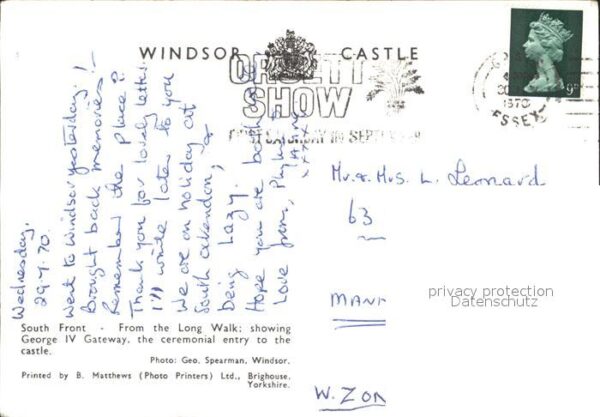 WINDSOR CASTLE
ORSETT
SHOW
FIRST SATURDAY IN SEPTEMBER
1970
ESSEX
9D
Wednesday,
29.7.70.
Went to Windsor yesterday!
Brought back memories!-
Remember the place?
Thank you for lovely letter.
I'll write later to you
We are on holiday at
South Ockendon;
being lazy.
Hope you are both
Love from, Phyllis
XXXX
Mr. & Mrs. L. Leonard
63
MANF
W. ZON
privacy protection
Datenschutz
South Front - From the Long Walk; showing
George IV Gateway, the ceremonial entry to the
castle.
Photo: Geo. Spearman, Windsor.
Printed by B. Matthews (Photo Printers) Ltd., Brighouse,
Yorkshire.